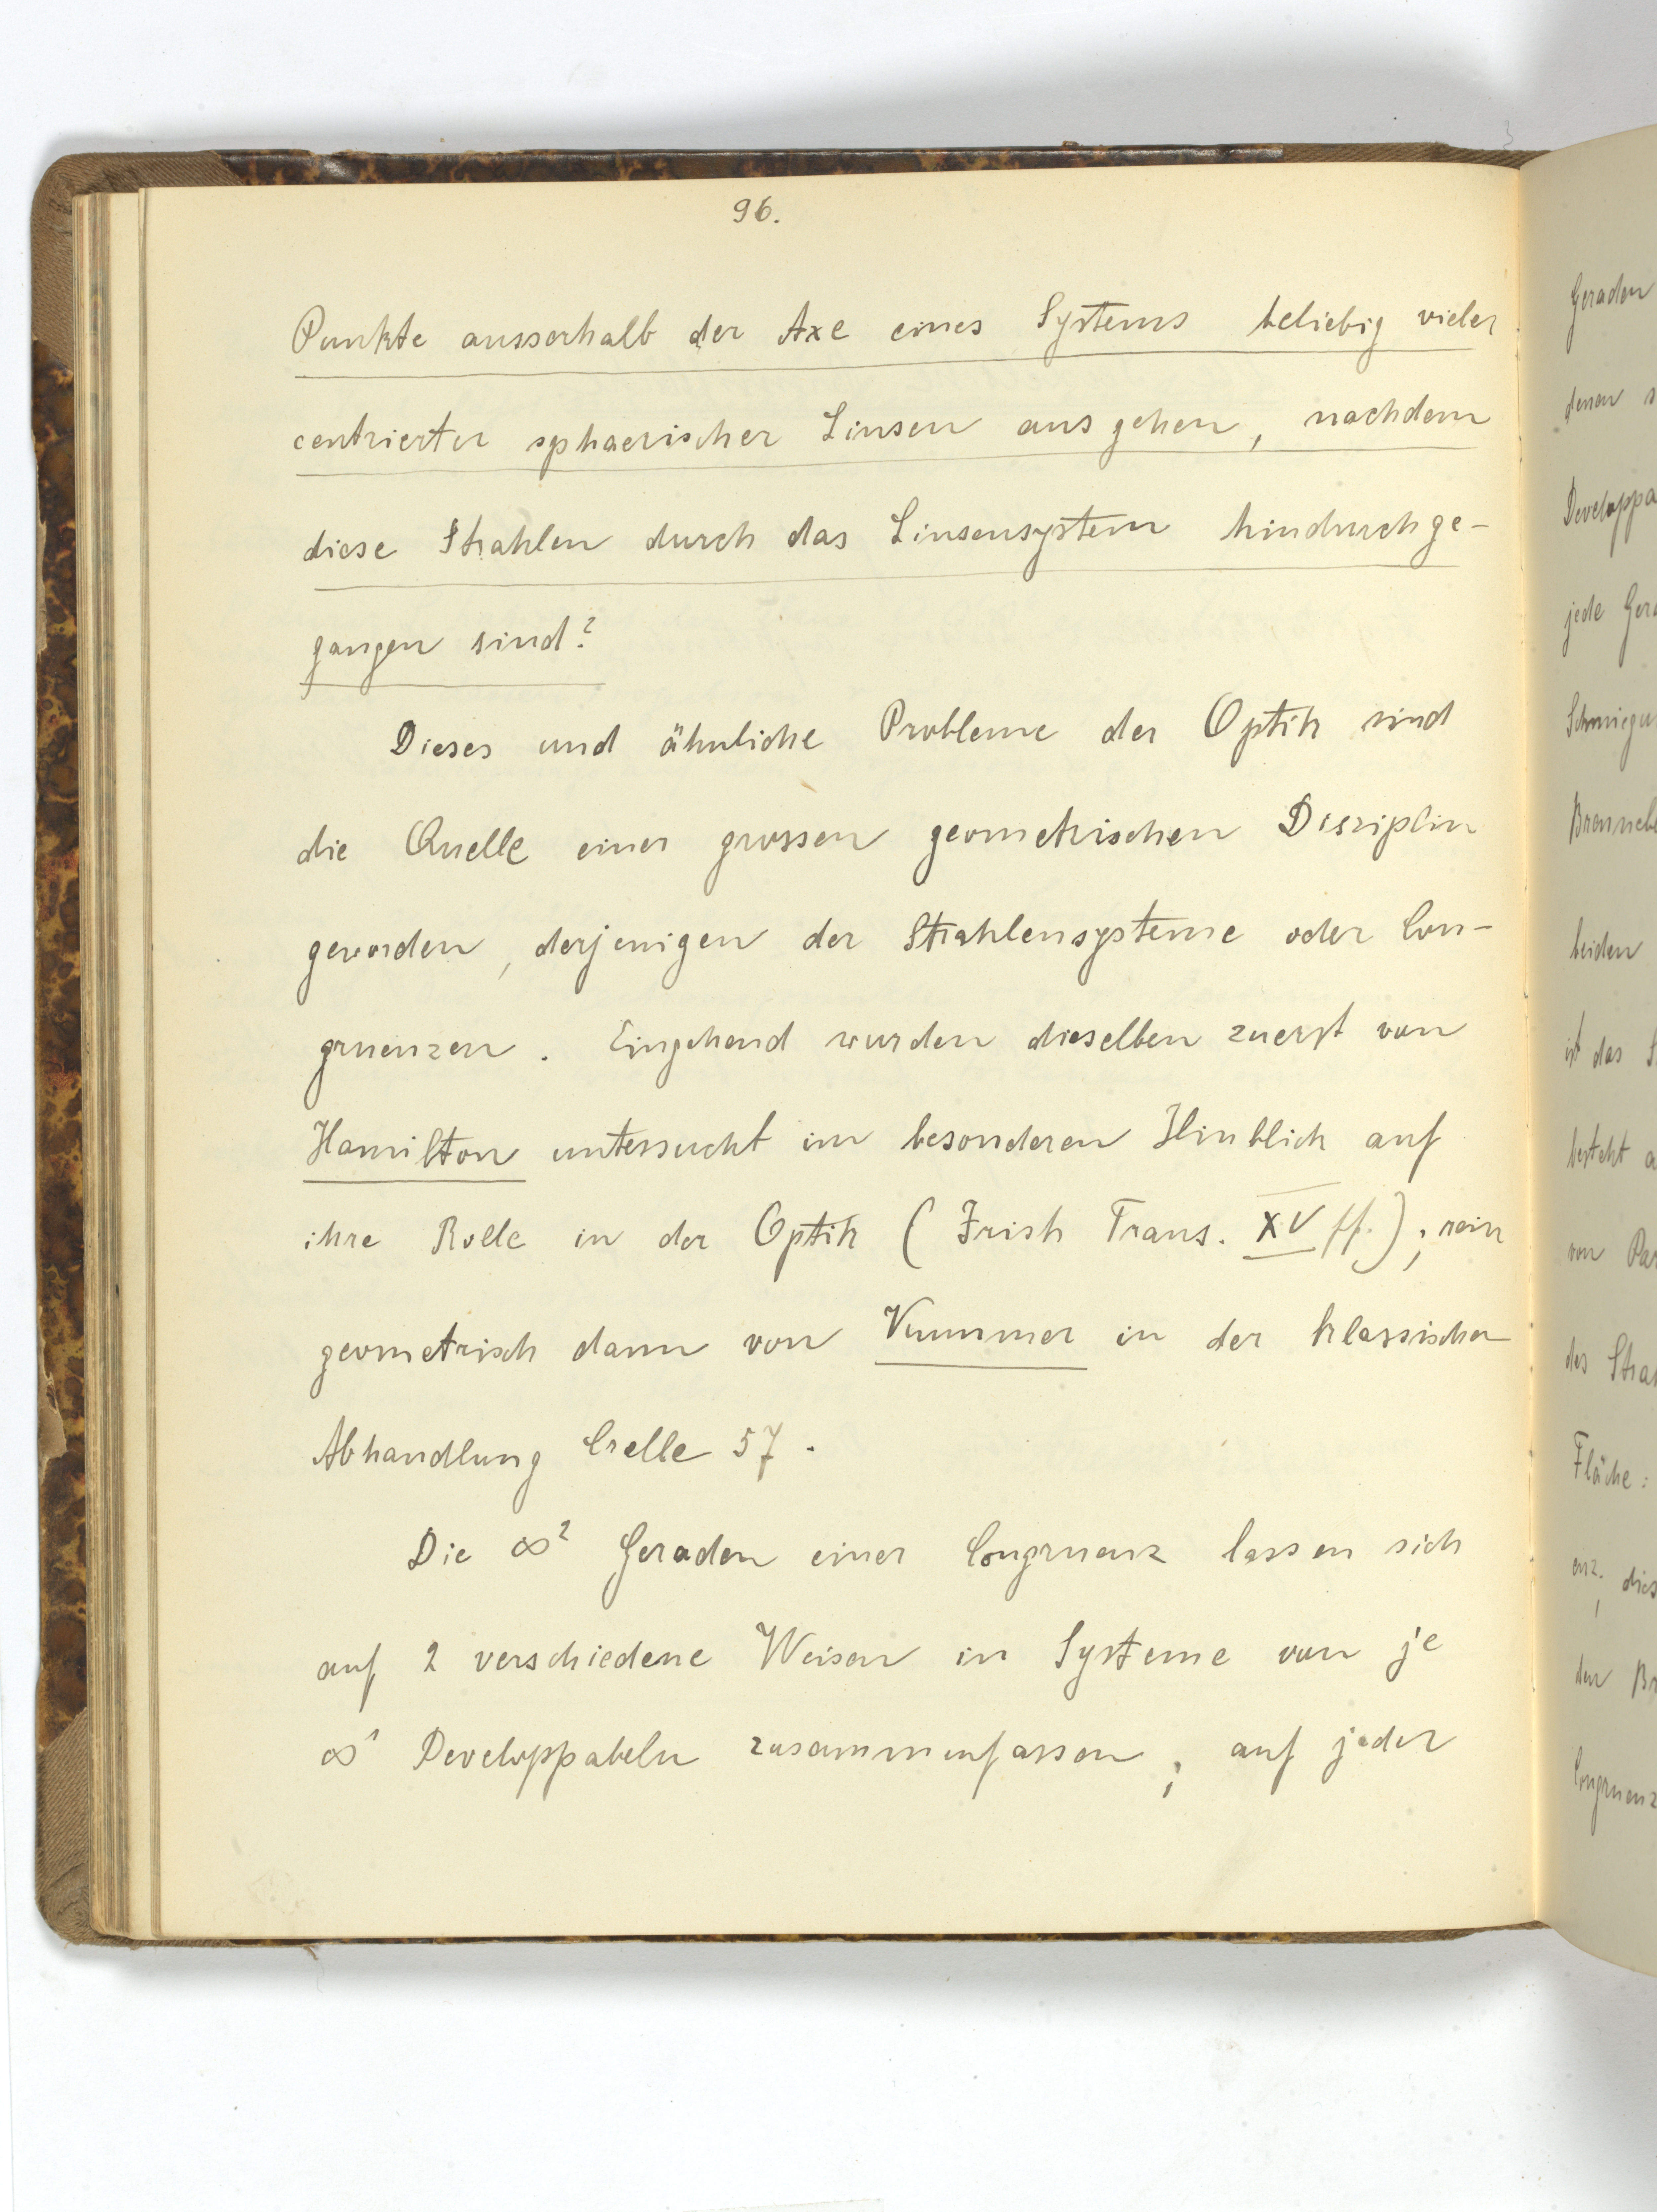 96.
Punkte ausserhalb der Axe eines Systems beliebig vieler
centrierter sphaerischer Linsen ausgehen, nachdem
diese Strahlen durch das Linsensystem hindurchge-
gangen sind?
Dieses und ähnliche Probleme der Optik sind
die Quelle einer grossen geometrischen Disziplin
geworden, derjenigen der Strahlensysteme oder Con-
gruenzen. Eingehend wurden dieselben zuerst von
Hamilton untersucht im besonderen Hinblick auf
ihre Rolle in der Optik (Irish Trans. XV ff.); rein
geometrisch dann von Kummer in der klassischen
Abhandlung Crelle 57.
Die ∞² Geraden einer Congruenz lassen sich
auf 2 verschiedene Weisen in Systeme von je
∞¹ Developpabeln zusammenfassen; auf jeder
Geraden
denen
jede
beiden
ist das
besteht
von
des
Fläche:
der
Congruenz